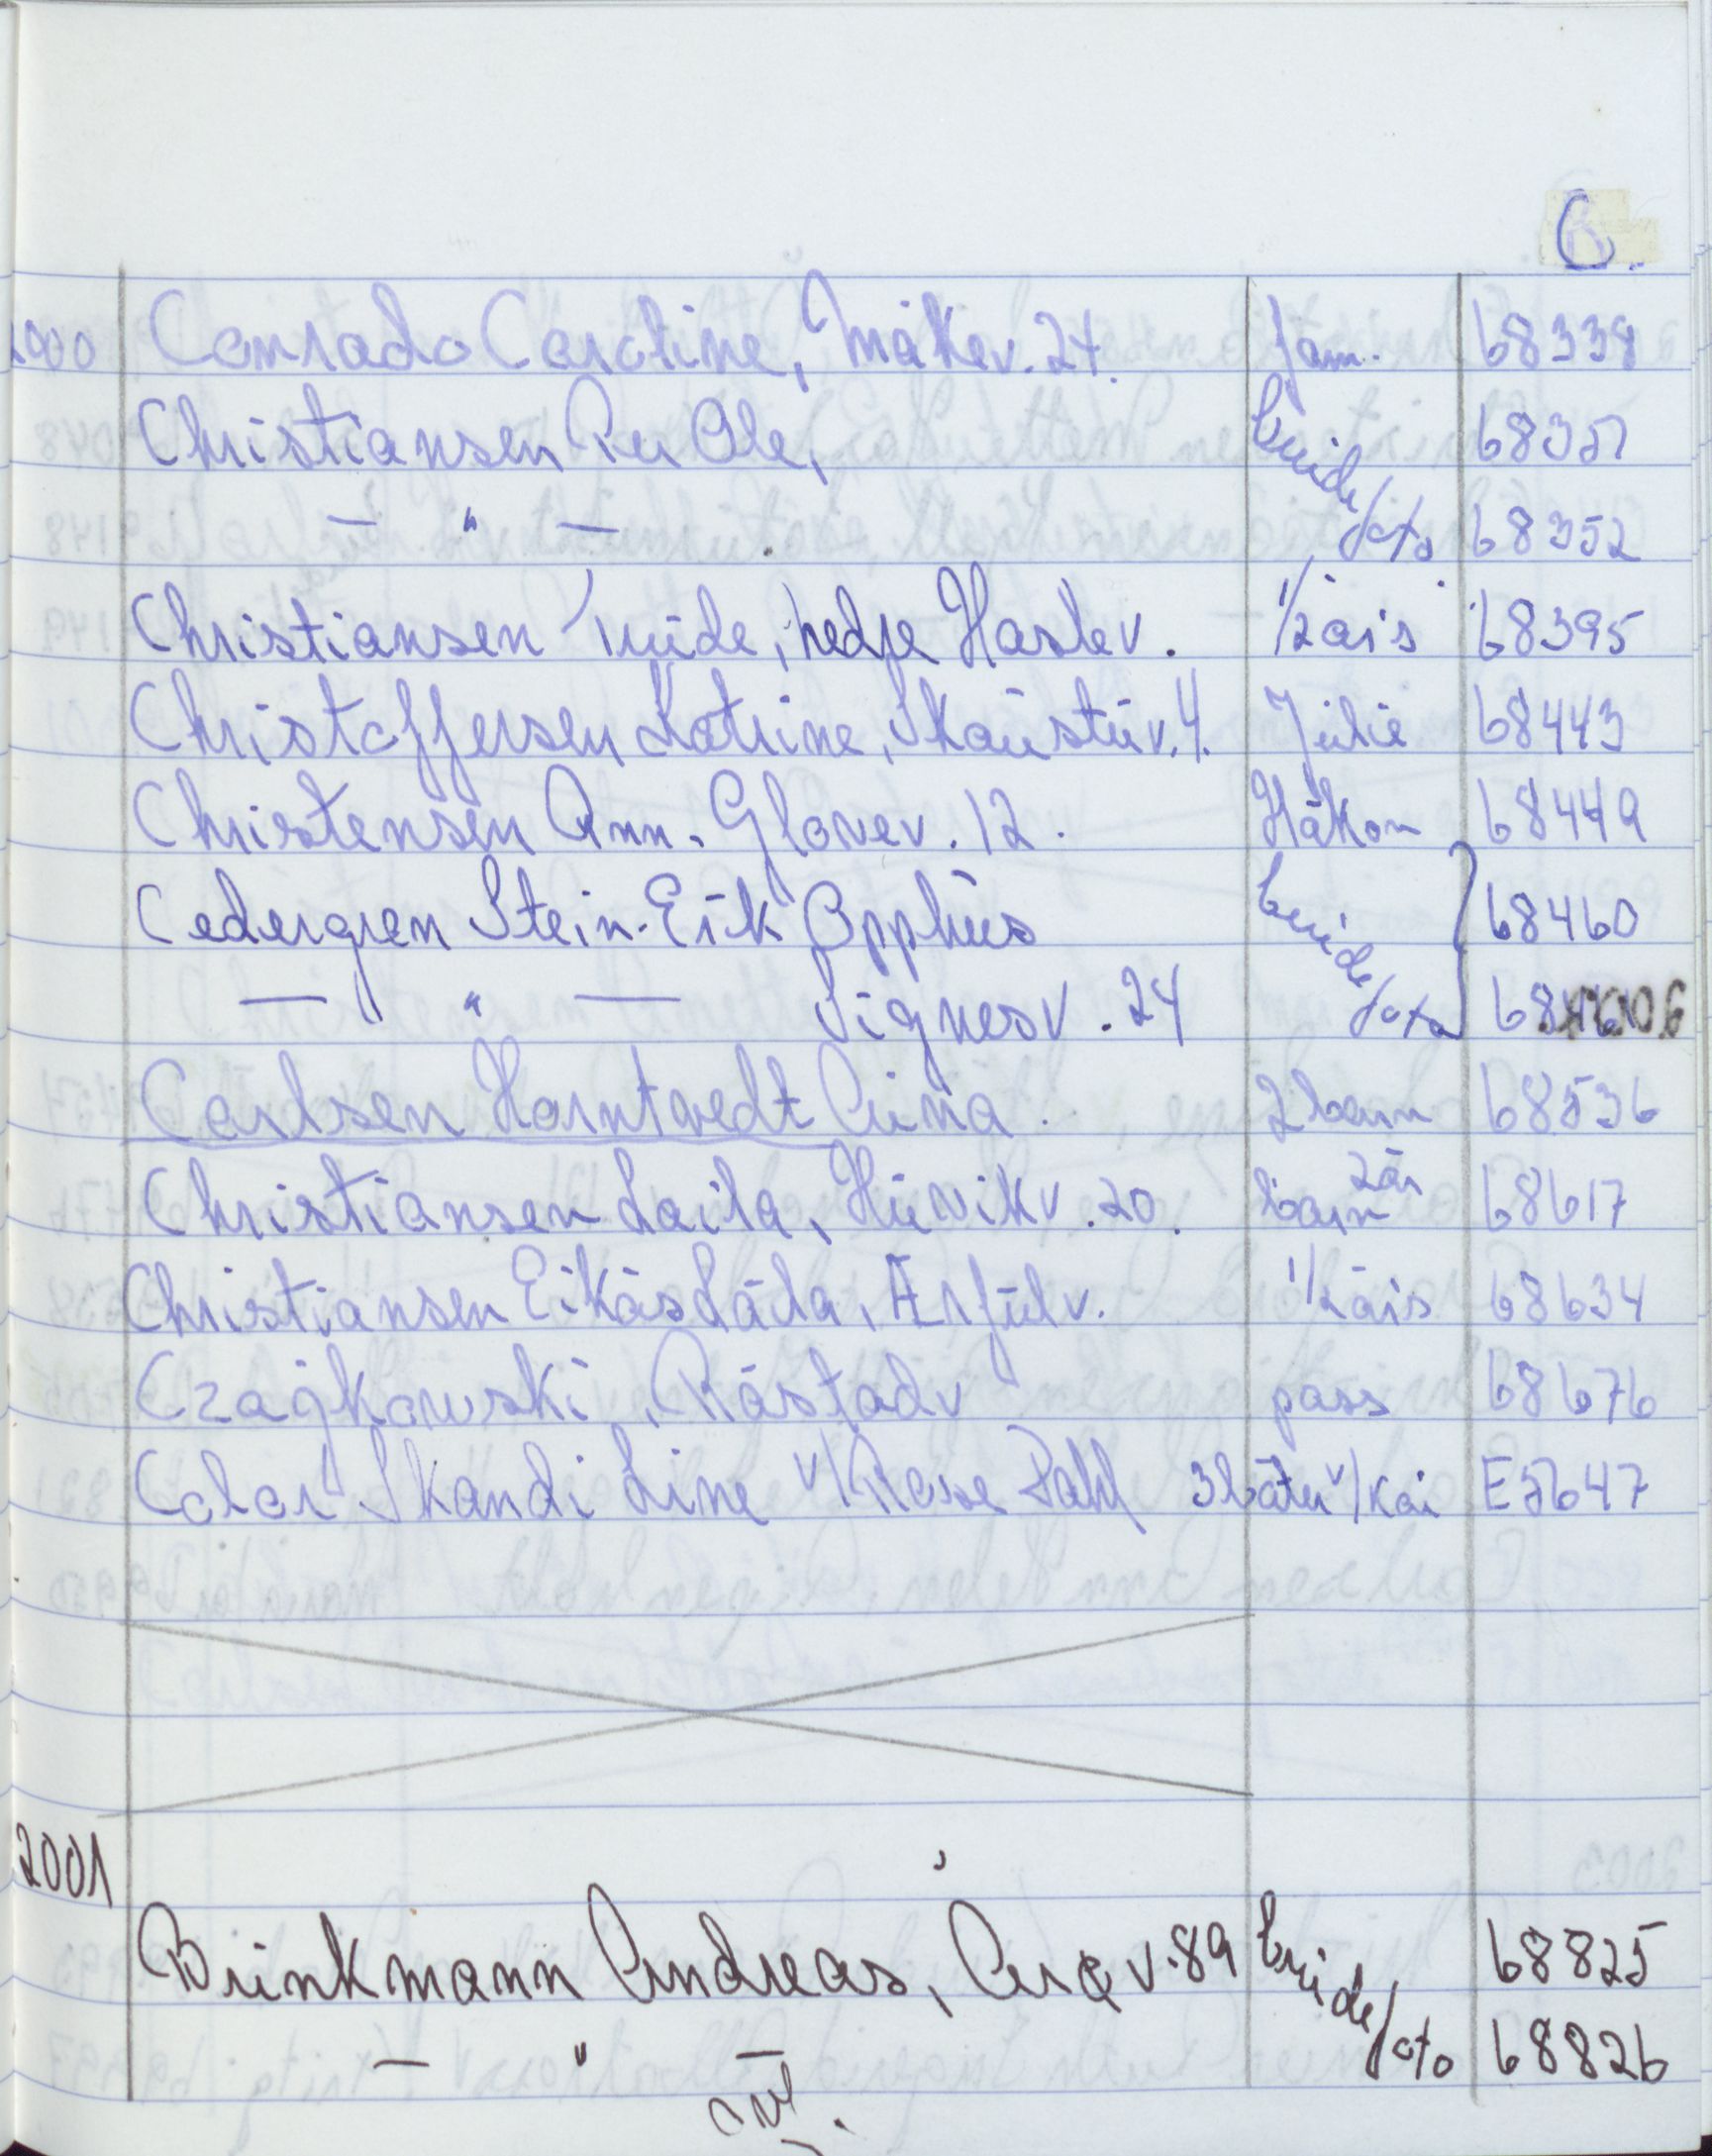 C.
2000 Conrado Caroline, Måkev. 24. fam. 68338
Christiansen Per Ole, brude/ 68351
— " — foto 68352
Christiansen Turide, nedre Haslev. 1/2 års 68395
Christoffersen Katrine, Skaustuv. 4. Julie 68443
Christensen Ann. Glovev. 12. Håkon 68449
Cedergren Stein-Erik Opphus brude/ 68460
— " — Signesv. 24 foto
Carlsen Horntvedt Unna. 2 barn 68536
Christiansen Laila, Huvikv. 20. barn 2 år 68617
Christiansen Eikås Låila, Ærfulv. 1/2 års 68634
Czajkowski, Råstadv pass 68676
Color Skandi Line v/Rose Dahl 3 båter v/kai E5647
2001
Brinkmann Andreas, Args v. 89 brude/ 68825
— " — foto 68826